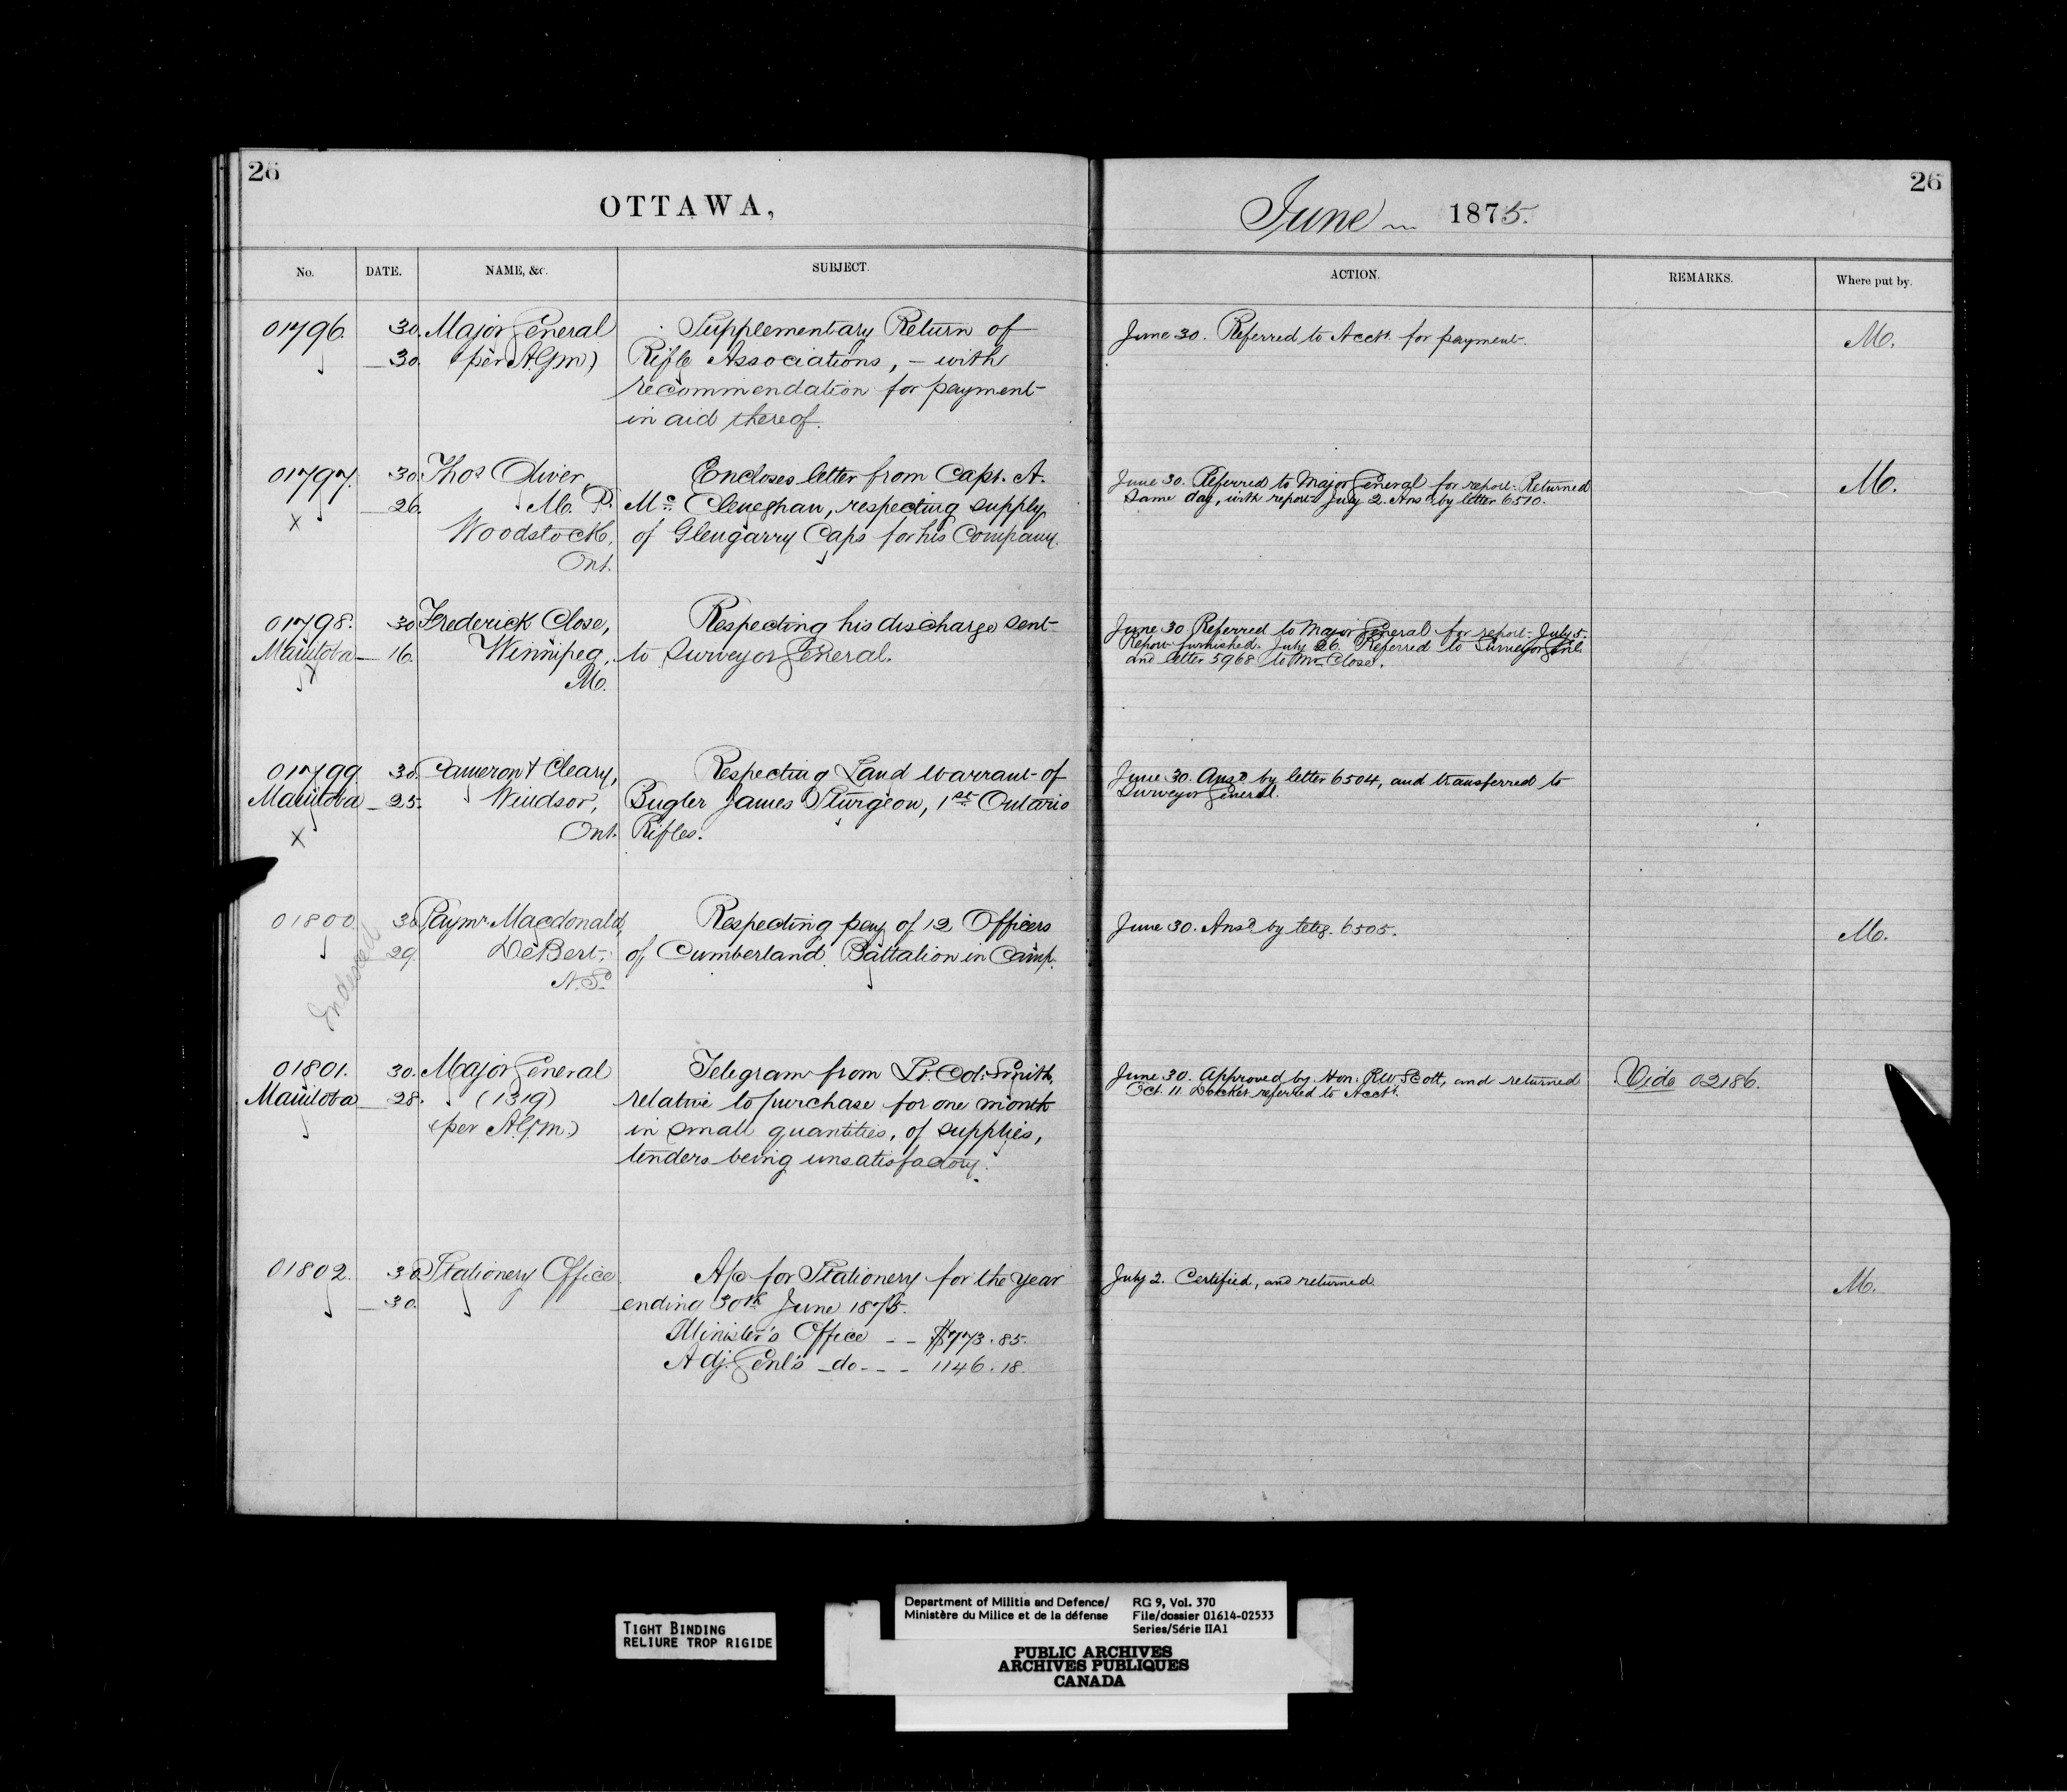 26
OTTAWA,
No.
DATE.
NAME, &c.
SUBJECT.
01796. 30. Major General Supplementary Return of
30. (per A.G.M) Rifle Associations, – with
recommendation for payment
in aid thereof.
01797. 30. Thos Oliver, Encloses letter from Capt. A.
26. M. P. Mc Cleneghan, respecting supply
X Woodstock, of Glengarry Caps for his Company.
Ont.
01798. 30 Frederick Close, Respecting his discharge sent
Manitoba 16. Winnipeg, to Surveyor General.
Mo.
01799 30. Cameron & Cleary, Respecting Land Warrant of
Manitoba 25. Windsor, Bugler James Sturgeon, 1st Ontario
X Ont. Rifles.
01800. 30. Paymr. Macdonald, Respecting pay of 12 Officers
29. DeBert, of Cumberland Battalion in Camp.
N. S.
01801. 30. Major General Telegram from Lt. Col. Smith,
Manitoba 28. (1319) relative to purchase for one month
(per A.G.M.) in small quantities, of supplies,
tenders being unsatisfactory.
01802. 30 Stationery Office A/c for Stationery for the year
30. ending 30th June 1875.
Minister's Office – – $773.85.
Adj. Genl's – do – – – 1146.18.
26
June 1875.
ACTION.
REMARKS.
Where put by.
June 30. Referred to Acct. for payment. M.
June 30. Referred to Major General for report. Returned M.
same day, with report. July 2. Ansd by letter 6510.
June 30 Referred to Major General for report. July 5.
Report furnished. July 26. Referred to Surveyor Genl.
and letter 5968 to Mr Close.
June 30. Ansd by letter 6504, and transferred to
Surveyor General.
June 30. Ansd by teleg. 6505. M.
June 30. Approved by Hon. R.W. Scott, and returned Vide 02186.
Oct. 11 Docket referred to Acct.
July 2. Certified, and returned M.
TIGHT BINDING
RELIURE TROP RIGIDE
Department of Militia and Defence/
Ministère du Milice et de la défense
RG 9, Vol. 370
File/dossier 01614-02533
Series/Série IIA1
PUBLIC ARCHIVES
ARCHIVES PUBLIQUES
CANADA